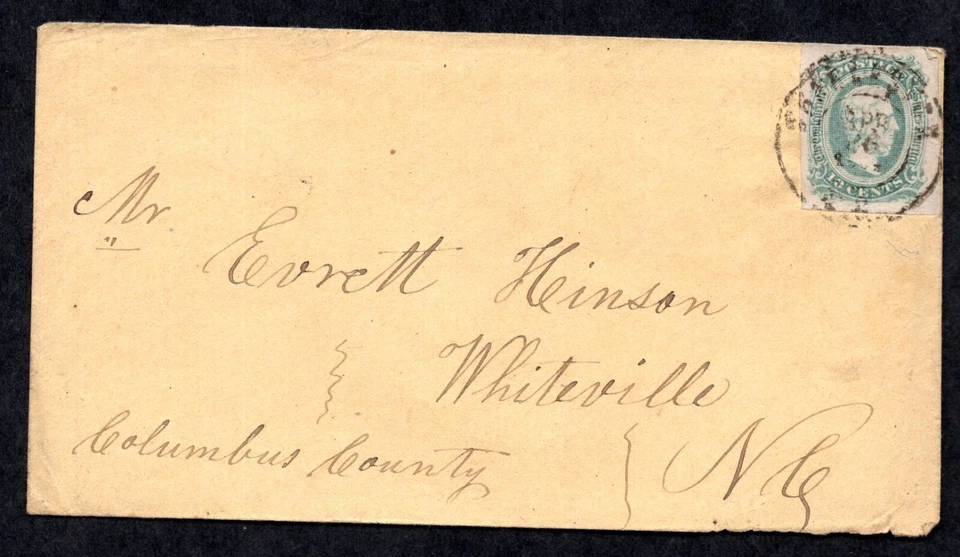 POSTAGE
APR
26
CENTS
Mr
"
Evrett Hinson
Whiteville
Columbus County
N C